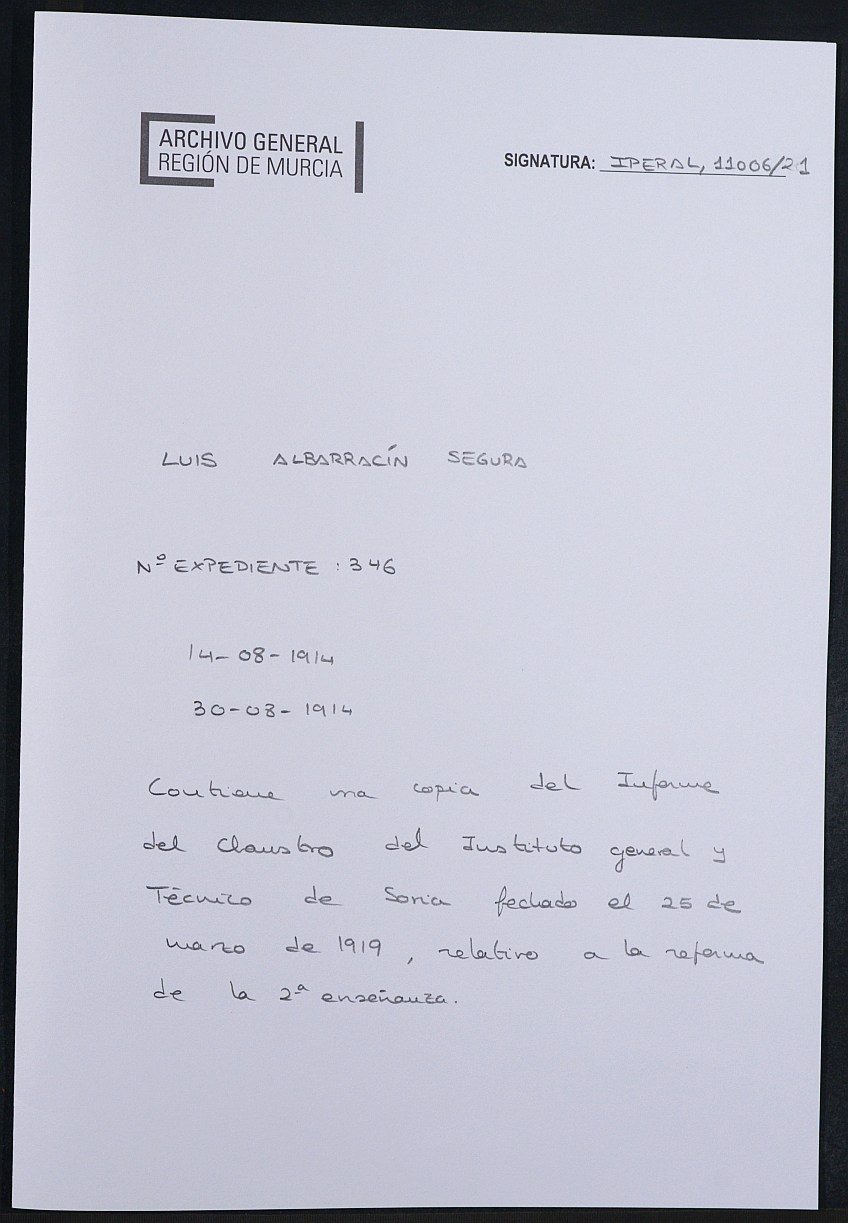 ARCHIVO GENERAL
REGIÓN DE MURCIA
SIGNATURA: IPERAL, 11006/21
LUIS ALBARRACÍN SEGURA
Nº EXPEDIENTE : 346
14-08-1914
30-08-1914
Contiene una copia del Informe
del Claustro del Instituto general y
Técnico de Soria fechado el 25 de
marzo de 1919, relativo a la reforma
de la 2ª enseñanza.